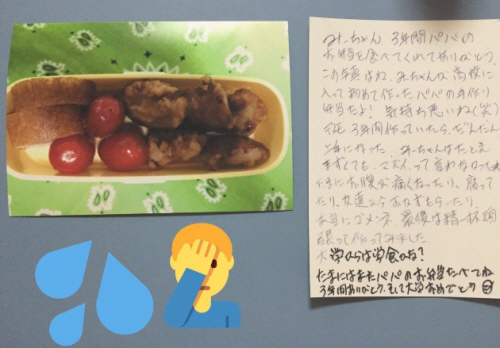 みーちゃん、3年間パパの
お弁当を食べてくれてありがとう。
この写真はね、みーちゃんが高校に
入って初めて作ったパパの手作り
弁当だよ! 気持ち悪いね(笑)
でも、3年間作っていたら、だんだん
上手になった。みーちゃんはたとえ
まずくても、マズイって言わなかった
ときにお腹が痛くなったり、腐って
たり、友達からおかずもらったり、
本当にゴメンネ。最後は精一杯頑
張って作ってみました。
大学からは学食かな?
たまにはまたパパのお弁当たべてね
3年間ありがとう、そして大学おめでとう